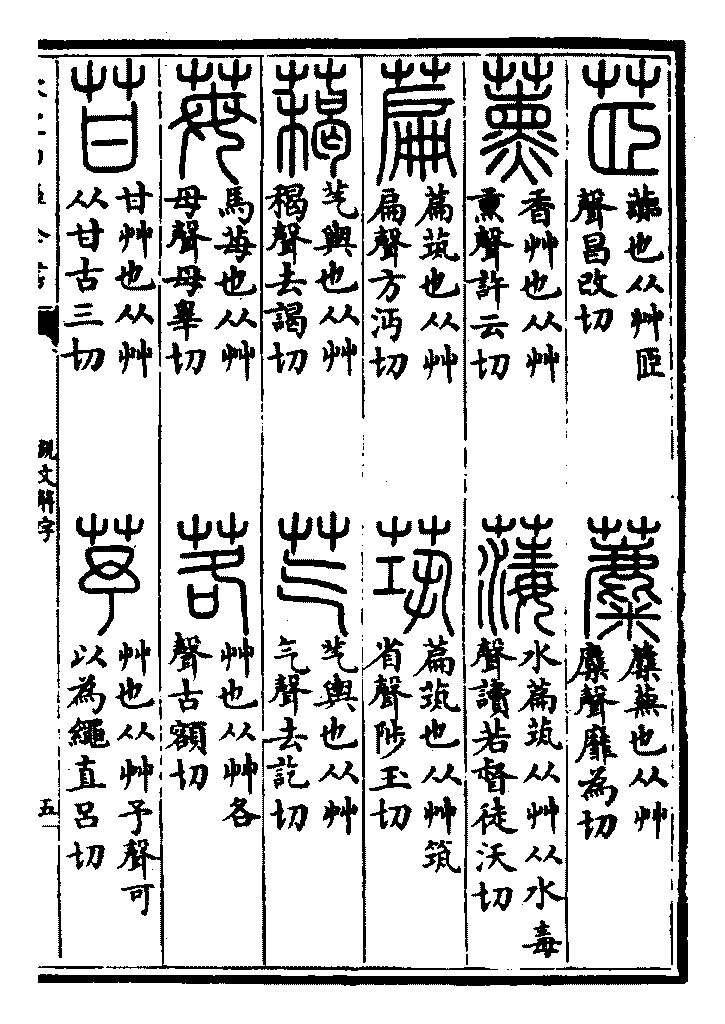 茝
虈也从艸𦣞
聲昌改切
蘪
蘪蕪也从艸
麋聲靡為切
薰
香艸也从艸
熏聲許云切
𦺇
水萹茿从艸从水毒
聲讀若督徒沃切
萹
萹茿也从艸
扁聲方沔切
茿
萹茿也从艸筑
省聲陟玉切
藒
芞輿也从艸
䅥聲去謁切
芞
芞輿也从艸
气聲去訖切
苺
馬苺也从艸
母聲母辠切
茖
艸也从艸各
聲古額切
苷
甘艸也从艸
从甘古三切
芧
艸也从艸予聲可
以為繩直呂切
說文解字
五